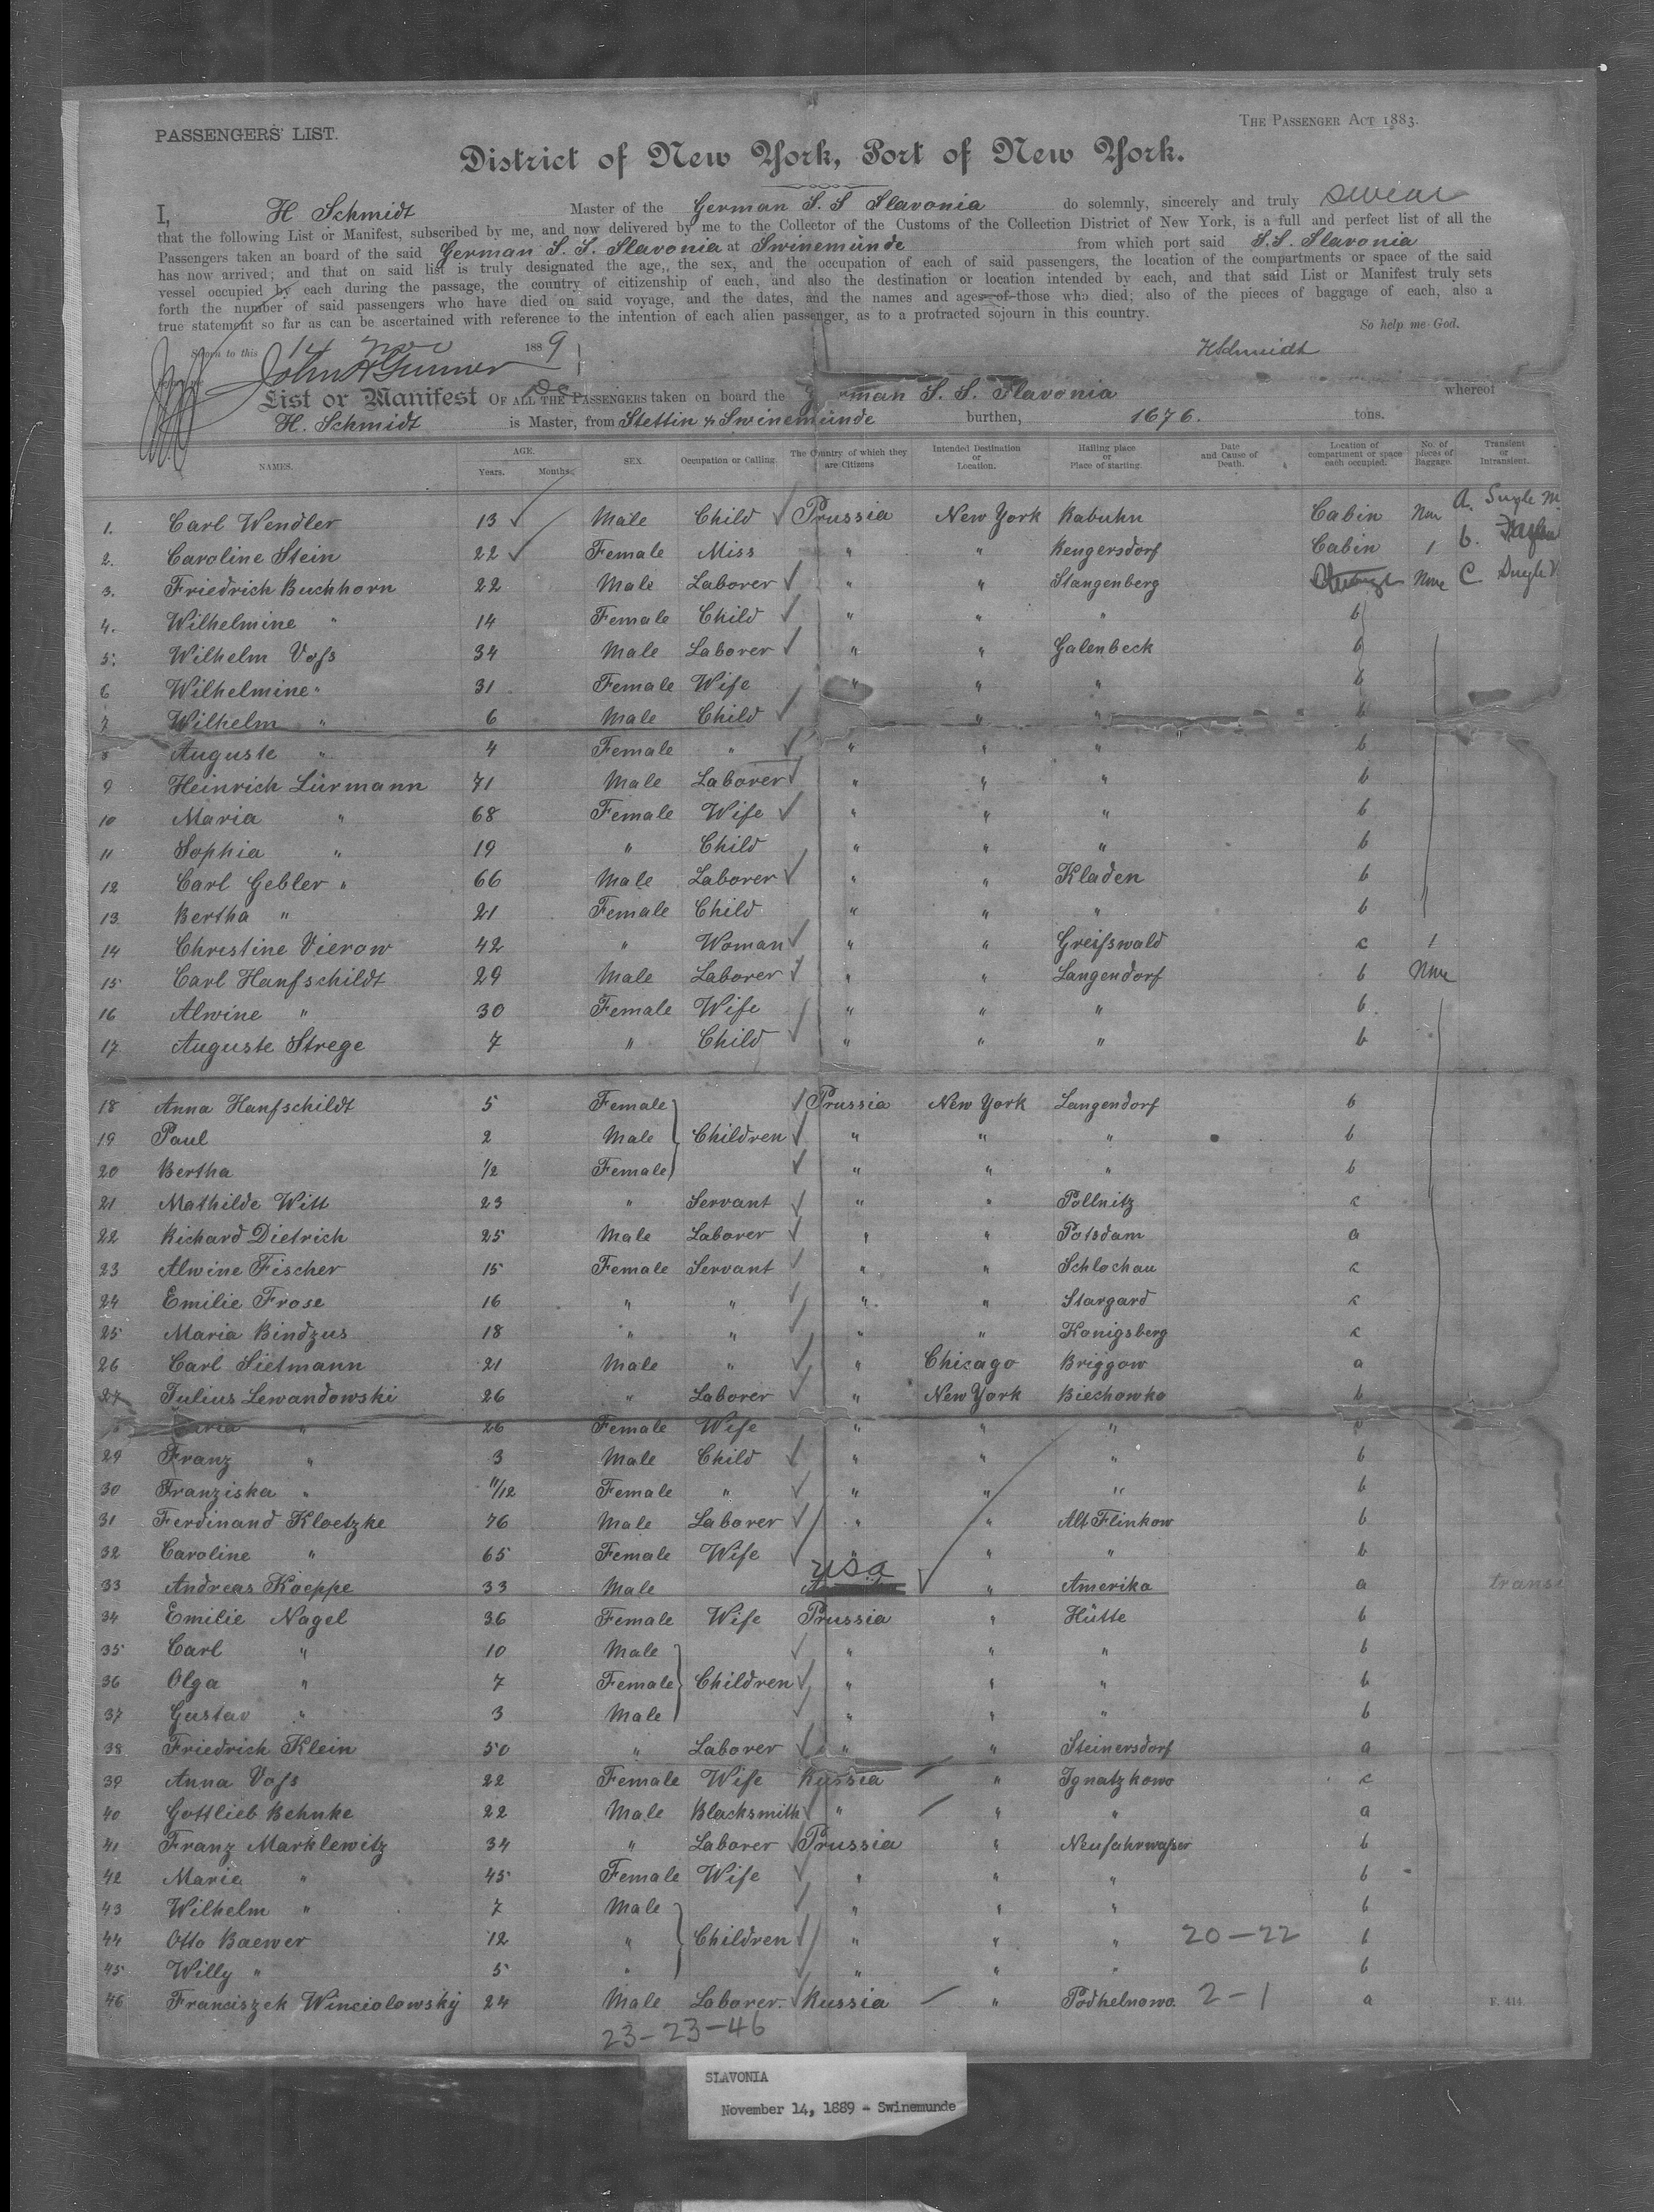 PASSENGERS' LIST.
THE PASSENGER ACT 1883.
District of New York, Port of New York.
I, H Schmidt Master of the German S. S Slavonia do solemnly, sincerely and truly swear
that the following List or Manifest, subscribed by me, and now delivered by me to the Collector of the Customs of the Collection District of New York, is a full and perfect list of all the
Passengers taken an board of the said German S. S. Slavonia at Swinemünde from which port said S.S. Slavonia
has now arrived; and that on said list is truly designated the age, the sex, and the occupation of each of said passengers, the location of the compartments or space of the said
vessel occupied by each during the passage, the country of citizenship of each, and also the destination or location intended by each, and that said List or Manifest truly sets
forth the number of said passengers who have died on said voyage, and the dates, and the names and ages of those who died; also of the pieces of baggage of each, also a
true statement so far as can be ascertained with reference to the intention of each alien passenger, as to a protracted sojourn in this country.
So help me God.
Sworn to this 14 Nov 1889
HSchmidt
List or Manifest OF ALL THE PASSENGERS taken on board the German S. S. Slavonia whereof
H. Schmidt is Master, from Stettin & Swinemünde burthen, 1676. tons.
NAMES. AGE. Years. Months. SEX. Occupation or Calling. The Country of which they are Citizens Intended Destination or Location. Hailing place or Place of starting. Date and Cause of Death. Location of compartment or space each occupied. No. of pieces of Baggage. Transient or Intransient.
1. Carl Wendler 13 Male Child Prussia New York Rabuhn Cabin None a.
2. Caroline Stein 22 Female Miss " " Rengersdorf Cabin 1 b.
3. Friedrich Buchhorn 22 Male Laborer " " Stangenberg None C.
4. Wilhelmine " 14 Female Child " " " b
5. Wilhelm Voſs 34 Male Laborer " " Galenbeck b
6 Wilhelmine " 31 Female Wife " " " b
7 Wilhelm " 6 Male Child " " b
8 Auguste " 4 Female " " " " b
9 Heinrich Lürmann 71 Male Laborer " " " b
10 Maria " 68 Female Wife " " " b
11 Sophia " 19 " Child " " " b
12 Carl Gebler " 66 Male Laborer " " Kladen b
13 Bertha " 21 Female Child " " " b
14 Christine Vierow 42 " Woman " " Greiſswald c 1
15 Carl Hanfschildt 29 Male Laborer " " Langendorf b None
16 Alwine " 30 Female Wife " " " b
17 Auguste Strege 7 " Child " " " b
18 Anna Hanfschildt 5 Female Prussia New York Langendorf b
19 Paul 2 Male Children " " " b
20 Bertha 1/2 Female " " " b
21 Mathilde Witt 23 " Servant " " Pollnitz c
22 Richard Dietrich 25 Male Laborer " " Potsdam a
23 Alwine Fischer 15 Female Servant " " Schlochau c
24 Emilie Frase 16 " " " " Stargard c
25 Maria Bindzus 18 " " " " Konigsberg c
26 Carl Sietmann 21 Male " " Chicago Briggow a
27 Julius Lewandowski 26 " Laborer " New York Biechowko b
" 26 Female Wife " " " b
29 Franz " 3 Male Child " " " b
30 Franziska " 11/12 Female " " " " b
31 Ferdinand Kloetzke 76 Male Laborer " " Alt Flinkow b
32 Caroline " 65 Female Wife " " " b
33 Andreas Koeppe 33 Male USA " Amerika a
34 Emilie Nagel 36 Female Wife Prussia " Hütte b
35 Carl " 10 Male " " " b
36 Olga " 7 Female Children " " " b
37 Gustav " 3 Male " " " b
38 Friedrich Klein 50 " Laborer " " Steinersdorf a
39 Anna Voſs 22 Female Wife Russia " Ignatzkowo c
40 Gottlieb Behnke 22 Male Blacksmith " " " a
41 Franz Marklewitz 34 " Laborer Prussia " Neufahrwaſser b
42 Maria " 45 Female Wife " " " b
43 Wilhelm " 7 Male " " " b
44 Otto Baewer 12 " Children " " " 20-22 b
45 Willy " 5 " " " " b
46 Franciszek Winciolowský 24 Male Laborer. Russia " Podhelnowo 2-1 a
F. 414
23-23-46
SLAVONIA
November 14, 1889 - Swinemunde